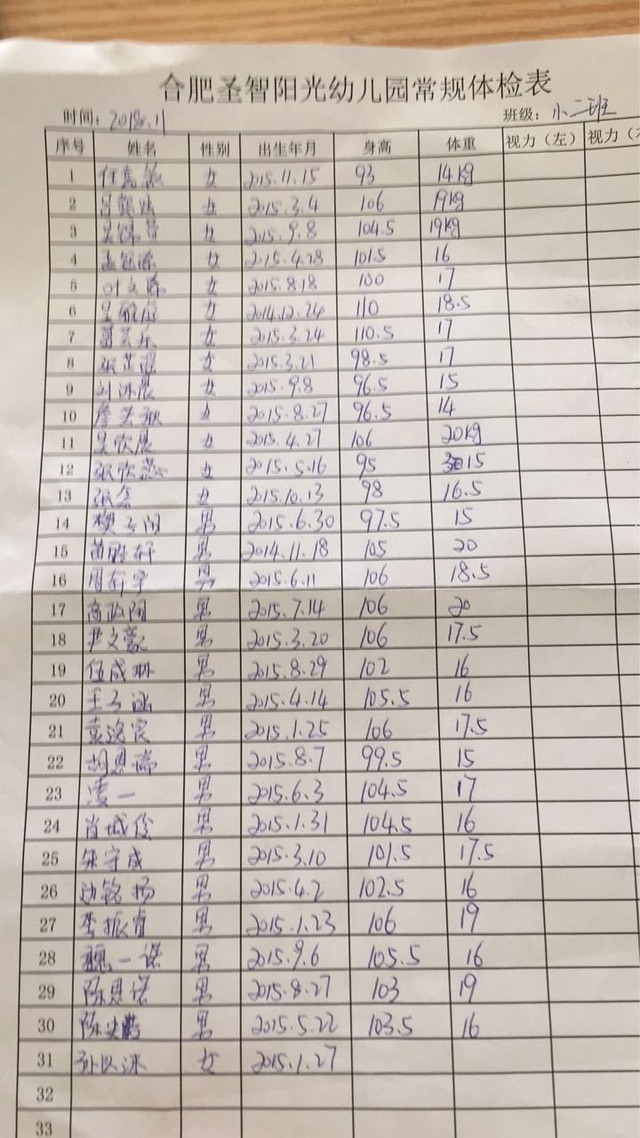 合肥圣智阳光幼儿园常规体检表
时间：2018.11 班级：小二班
序号 姓名 性别 出生年月 身高 体重 视力（左） 视力（
1 女 2015.11.15 93 14kg
2 女 2015.3.4 106 19kg
3 女 2015.9.8 104.5 19kg
4 女 2015.4.28 101.5 16
5 叶文 女 2015.8.18 100 17
6 女 2014.12.24 110 18.5
7 女 2015.3.24 110.5 17
8 张芷 女 2015.3.21 98.5 17
9 刘沐晨 女 2015.9.8 96.5 15
10 女 2015.8.27 96.5 14
11 吴欣晨 女 2015.4.27 106 20kg
12 张欣 女 2015.5.16 95 15
13 张 女 2015.10.13 98 16.5
14 男 2015.6.30 97.5 15
15 轩 男 2014.11.18 105 20
16 周轩宇 男 2015.6.11 106 18.5
17 高 男 2015.7.14 106 20
18 尹文豪 男 2015.3.20 106 17.5
19 伍成林 男 2015.8.29 102 16
20 王子涵 男 2015.4.14 105.5 16
21 袁洛宸 男 2015.1.25 106 17.5
22 胡恩 男 2015.8.7 99.5 15
23 凌一 男 2015.6.3 104.5 17
24 肖城俊 男 2015.1.31 104.5 16
25 朱宇成 男 2015.3.10 101.5 17.5
26 扬 男 2015.4.2 102.5 16
27 李振 男 2015.1.23 106 19
28 魏一诺 男 2015.9.6 105.5 16
29 陈恩诺 男 2015.8.27 103 19
30 陈 男 2015.5.22 103.5 16
31 孙以沫 女 2015.1.27
32
33